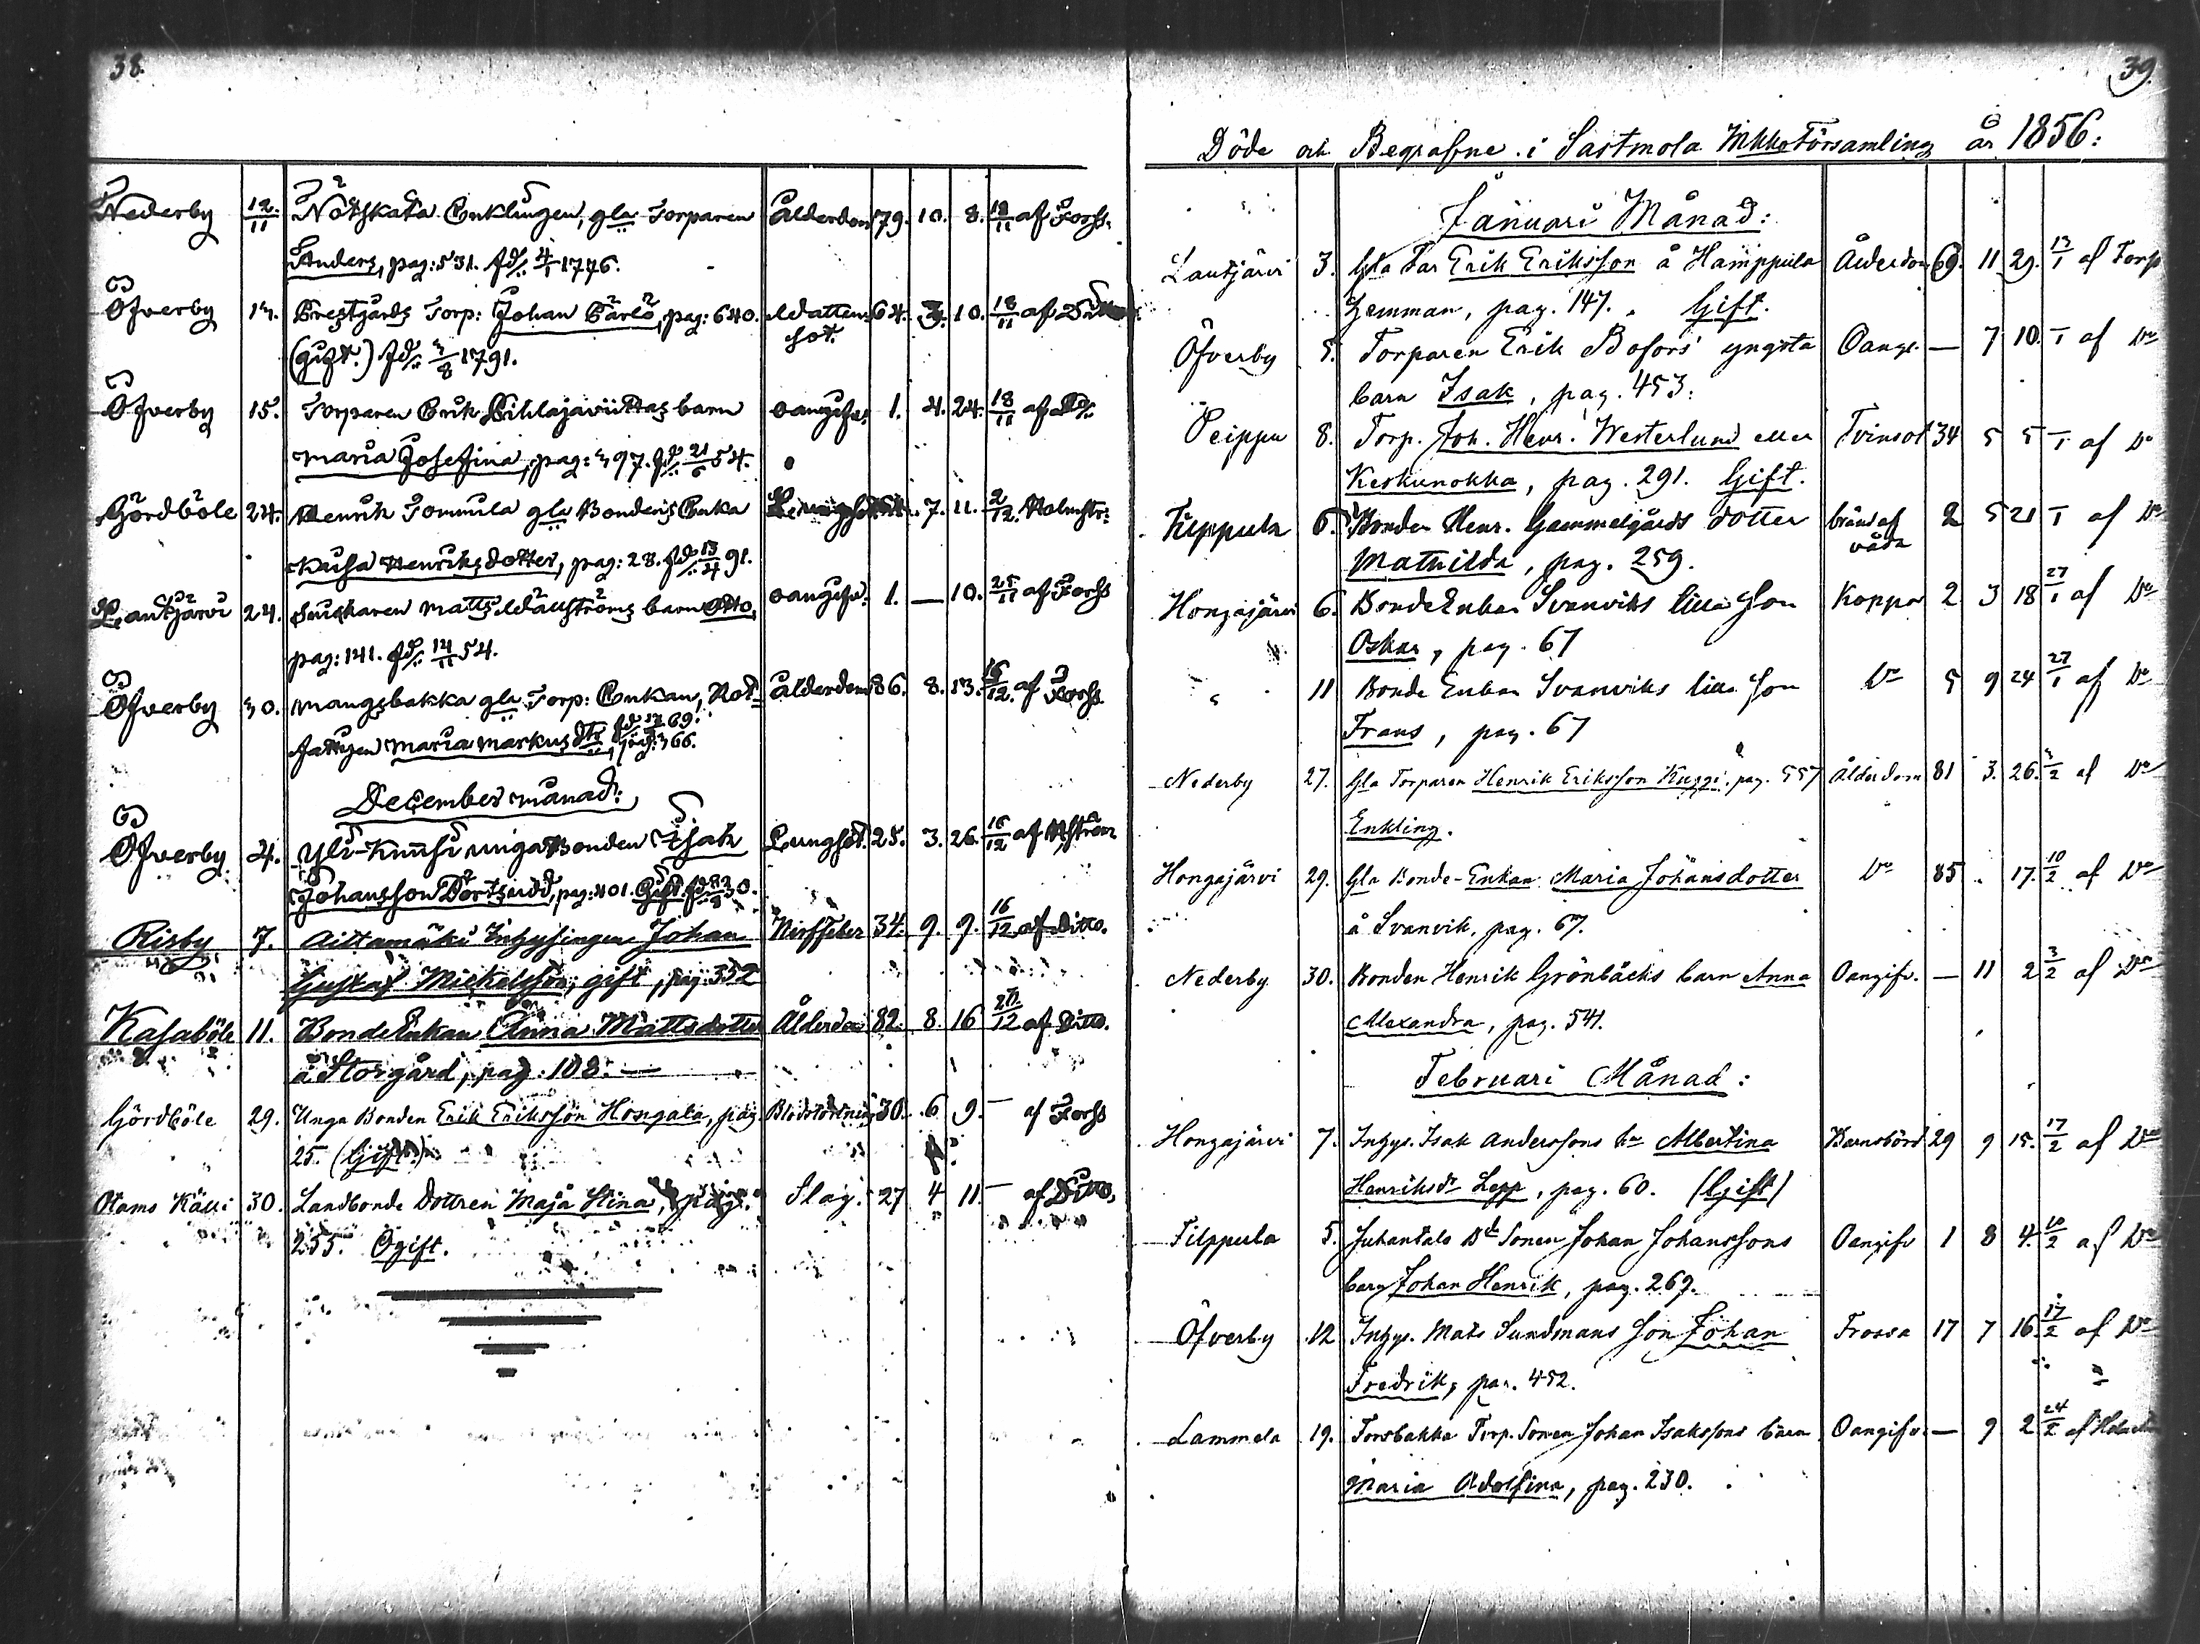 38.
Nederby 12/11 Nötskata Enklingen, gla Torparen Ålderdom 79. 10. 8. 18/11 af Forss.
Anders, pag: 531. fd: 4/1 1776.
Öfverby 13. Prestgårds Torp: Johan Pärlö, pag: 640. Watten- 64. 3. 10. 18/11 af
(gift.) fd: 3/8 1791. sot.
Öfverby 15. Torparen Erik barn oangifv: 1. 4. 24. 18/11 af Do.
Maria Josefina, pag: 397. fd: 21/6 54.
Gördböle 24. Henrik Tommila gla Bondens Enka Lungsot 7. 11. 2/12. Holmstr:
Kaisa Henriksdotter, pag: 28. fd: 13/4 91.
Lautjärvi 24. Matts barn Otto, oangifv: 1. — 10. 25/11 af Forss
pag: 141. fd: 14/11 54.
Öfverby 30. Mangsbakka gla Torp: Enkan, Rot- Ålderdom 86. 8. 13. 16/12. af Forss
fattigen Maria Markusdtr, pag: 366.
December månad:
Öfverby 4. Yli-Knusi unga Bonden Isak Lungsot. 25. 3. 26. 16/12 af
Johansson Dörtsudd, pag: 401. Gift. fd:
Risby 7. Aittamäki Inhysingen Johan Nerffeber 34. 9. 9. 16/12 af Ditto.
Gustaf Mickelsson, gift, pag: 352
Kasaböle 11. BondeEnkan Anna Mattsdotter Ålderdom 82. 8. 16 /12 af Ditto.
å Storgård, pag: 108. —
Gördböle 29. Unga Bonden Erik Eriksson Hongala, pag. Blodstörtning 30. 6 9. — af Forss
25. (Gift.)
Otams Källi 30. Landbonde Dottren Maja Stina, pag. Slag. 27 4 11. — af Ditto,
255. Ogift.
39.
Döde och Begrafne i Sastmola Församling år 1856:
Januari Månad:
Lautjärvi 3. Gla Far Erik Eriksson å Hamppula Ålderdom 69. 11 29. 13/1 af Forss
Hemman, pag. 147. Gift.
Öfverby 5. Torparen Erik Bofors' yngsta Oangf. — 7 10. /1 af Do
barn Isak, pag. 453.
Peippu 8. Torp. Joh. Henr. Westerlund eller Tvinsot 34 5 5 /1 af Do
Keskunokka, pag. 291. Gift.
Filppula 6. Bonden Henr. Gammelgårds dotter bränd af 2 5 21 /1 af Do
Mathilda, pag. 259. våda
Hongajärvi 6. BondeEnkan Svanviks lilla Son Koppor 2 3 18 27/1 af Do
Oskar, pag. 67
" 11 Bonde Enkan Svanviks lilla Son Do 5 9 24 27/1 af Do
Frans, pag. 67
Nederby 27. Gla Torparen Henrik Eriksson Kuggi, pag. 557 Ålderdom 81 3. 26. 3/2 af Do
Enkling.
Hongajärvi 29. Gla Bonde-Enkan Maria Johansdotter Do 85 . 17. 10/2 af Do
å Svanvik, pag. 67.
Nederby 30. Bonden Henrik Grönbäcks barn Anna Oangifv. — 11 2 3/2 af Do
Alexandra, pag. 541.
Februari Månad:
Hongajärvi 7. Inhys. Isak Anderssons hu Albertina Barnsbörd 29 9 15. 17/2 af Do
Henriksdr Lepp, pag. 60. (Gift)
Filppula 5. Juhantalo Bd Sonen Johan Johanssons Oangifv 1 8 4. 10/2 af Do
barn Johan Henrik, pag. 267.
Öfverby 12 Inhys. Mats Sundmans Son Johan Frossa 17 7 16. 17/2 af Do
Fredrik, pag. 452.
Lammela 19. Forsbakka Torp. Sonen Johan Isakssons barn Oangifv. — 9 2 24/2 af
Maria Adolfina, pag. 230.